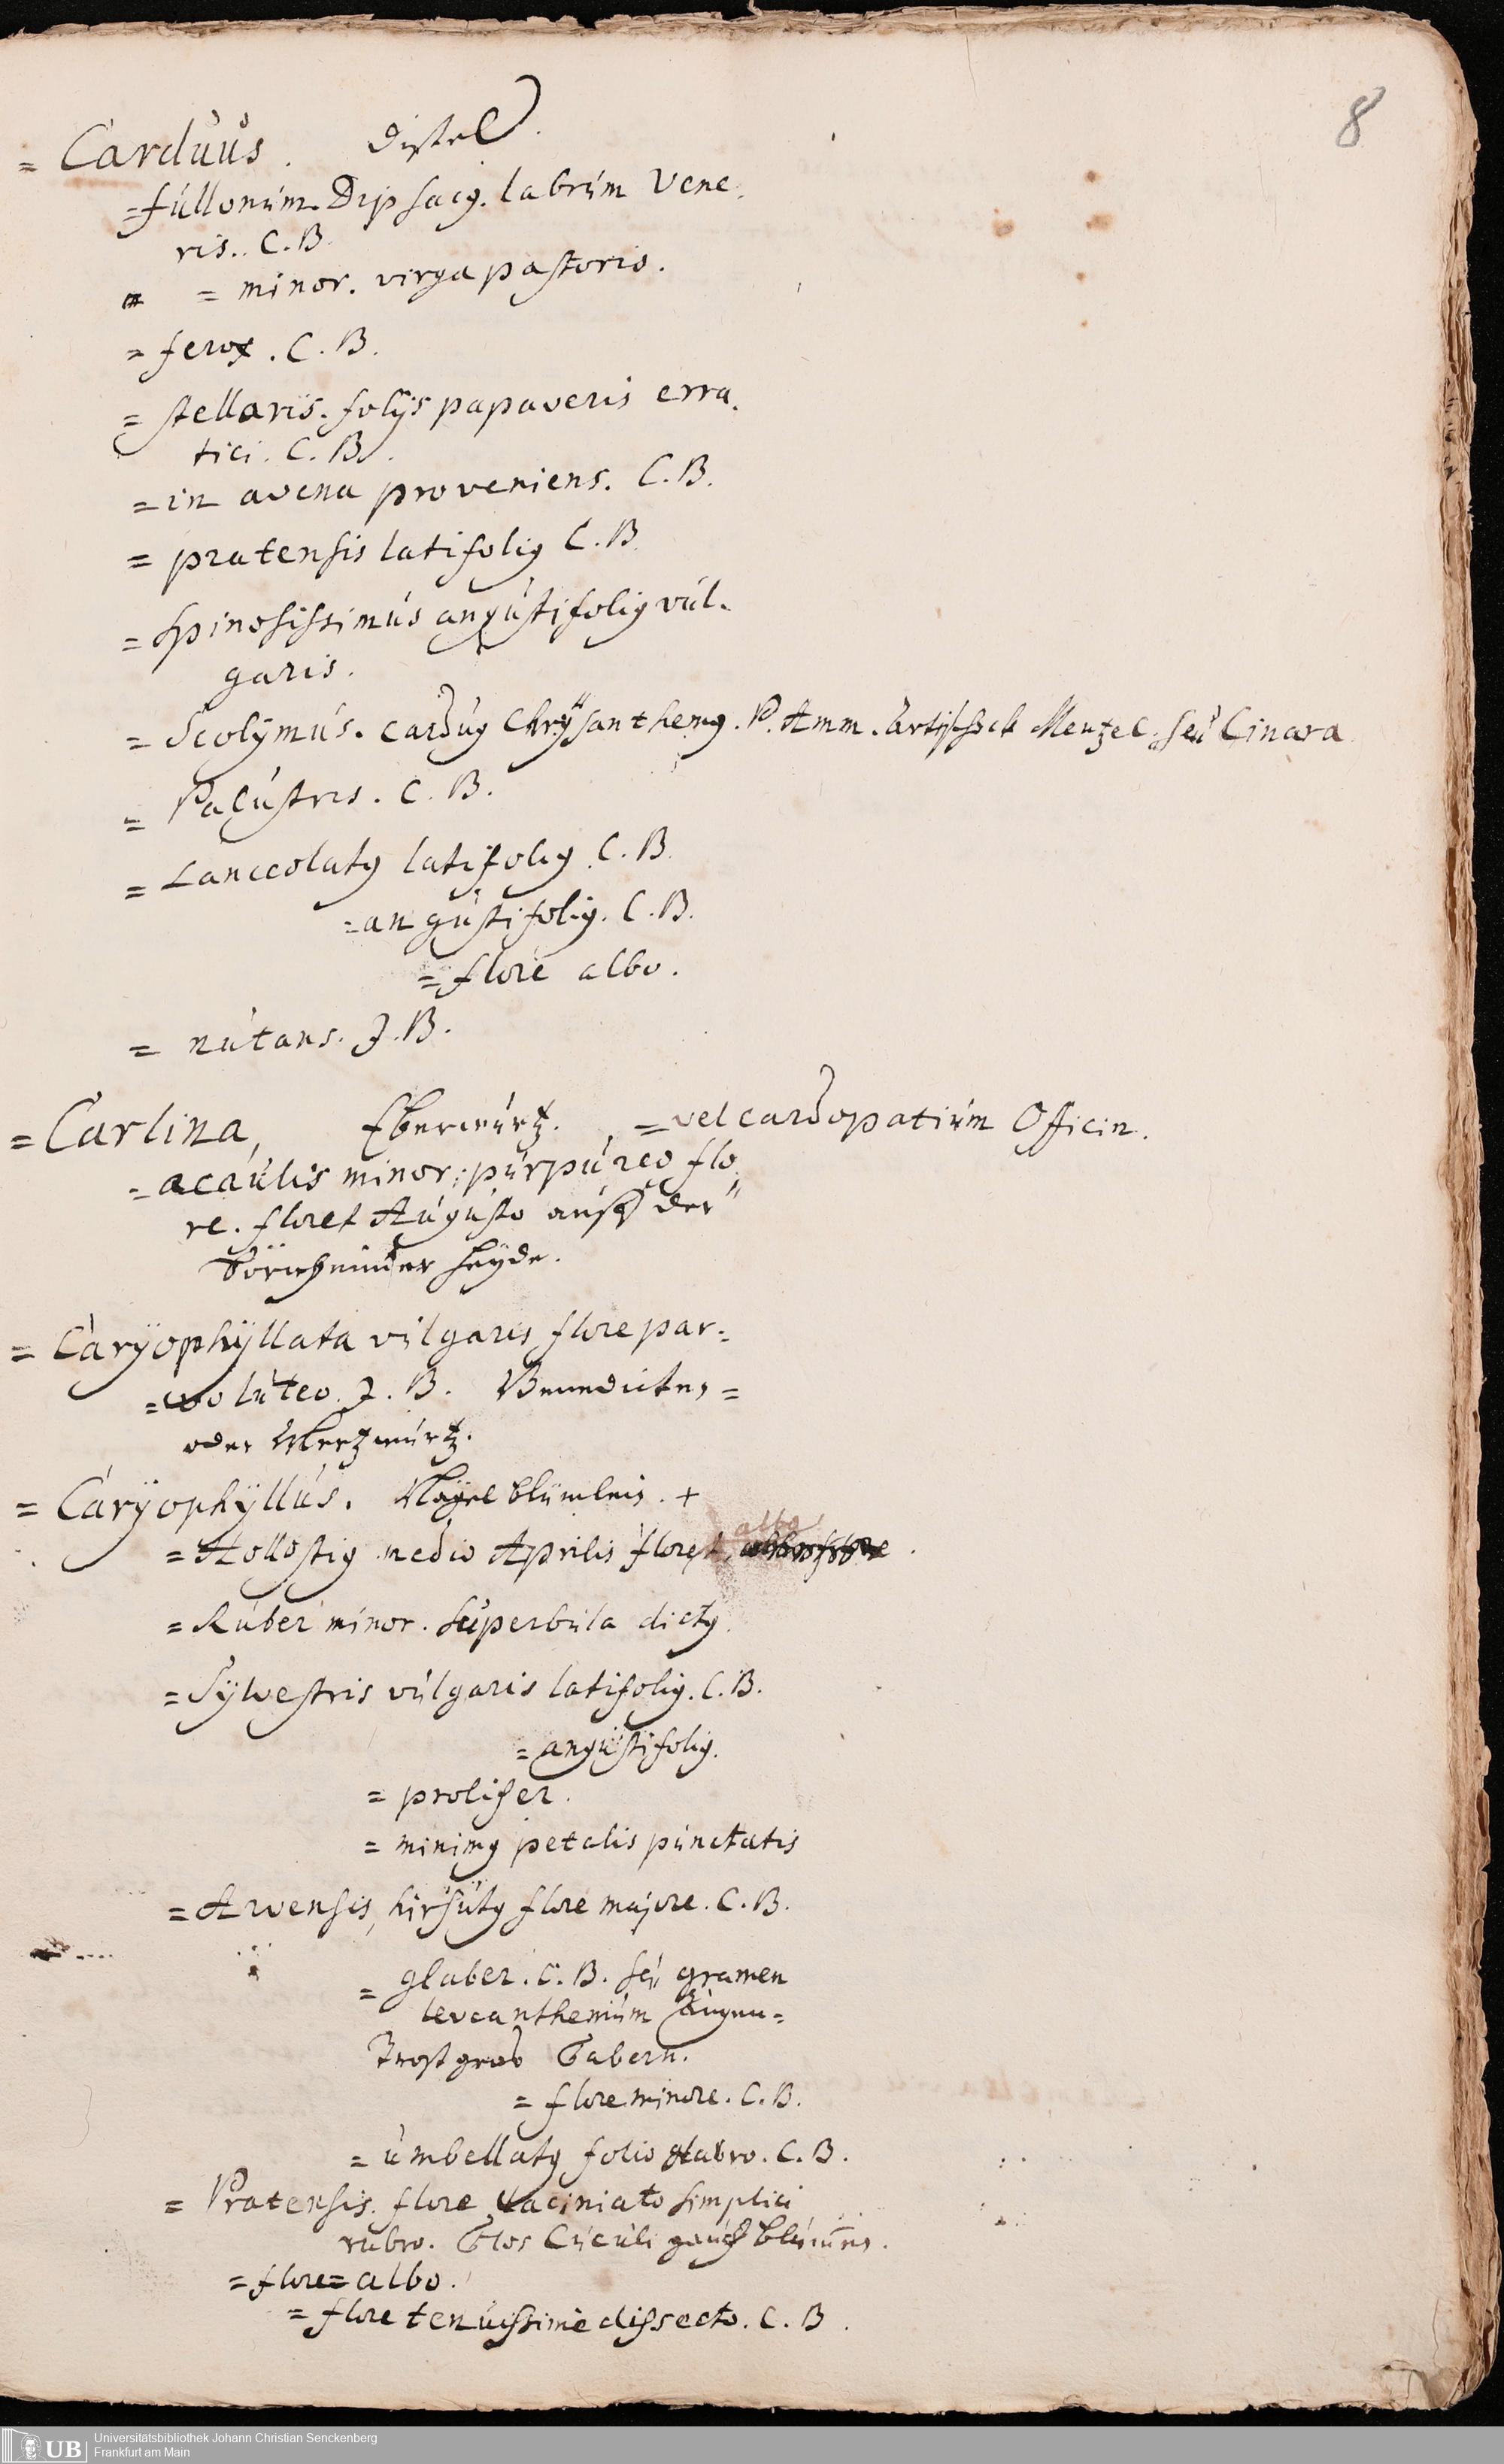 8
= Carduus. Distel.
= fullonum. Dipsacꝰ. labrum Vene.
ris.. C. B.
= = minor. virga pastoris.
= ferox. C. B.
= stellaris. folijs papaveris erra.
tici. C. B.
= in avena proveniens. C. B.
= pratensis latifoliꝰ C. B.
= Spinosissimus angustifoliꝰ vul.
garis.
= Scolÿmus. carduꝰ Chrÿsanthemꝰ. P. Amm. Artischock Menzel. seu Cinara
= Palustris. C. B.
= Lanceolatꝰ latifoliꝰ. C. B.
= angustifoliꝰ. C. B.
= flore albo.
= nutans. J. B.
= Carlina, Eberwurtz. = vel cardopatium Officin.
= acaulis minor; purpureo flo
re. floret Augusto auff der
heÿde.
= Carÿophÿllata vulgaris flore par=
= vo luteo. J. B. Benedicten =
oder Mertzwurtz.
= Carÿophÿllus. Nägel blümlein. +
= Hollostiꝰ medio Aprilis floret, albo
= Ruber minor. Superbula dictꝰ.
= Sÿlvestris vulgaris latifoliꝰ. C. B.
= angustifoliꝰ.
= prolifer.
= minimꝰ petalis punctatis
= Arvensis, hirsutꝰ flore majore. C. B.
= glaber. C. B. seu gramen
leucanthemum Augen=
Trostgraß Tabern.
= flore minore. C. B.
= umbellatꝰ folio glabro. C. B.
= Pratensis. flore laciniato simplici
rubro. Flos Cuculi gauchblumen.
= flore = albo.
= flore tenuissime dissecto. C. B.
UB
Universitätsbibliothek Johann Christian Senckenberg
Frankfurt am Main